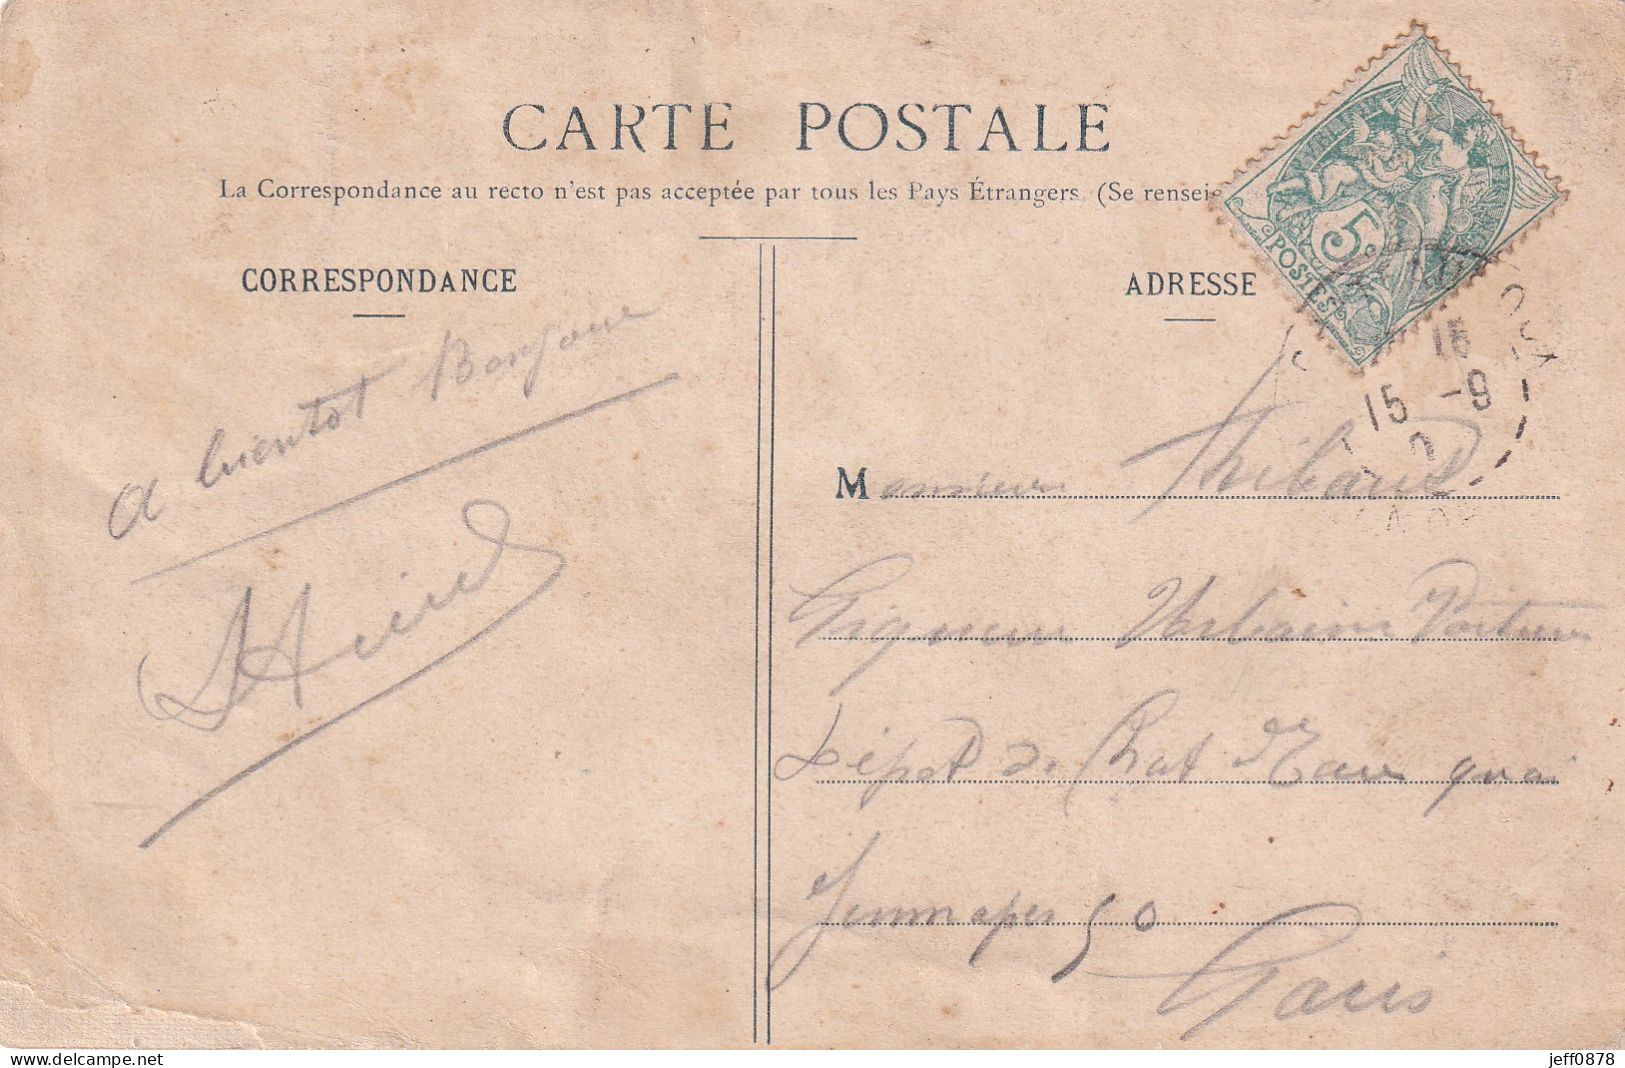 CARTE POSTALE
La Correspondance au recto n'est pas acceptée par tous les Pays Étrangers. (Se rensei
CORRESPONDANCE
ADRESSE
5
POSTES
15
15 -9
A bientot Bonjour
Monsieur Thibaud
Urbain
Dépot de Chat d'Eau quai
Jemmapes 50
Paris
www.delcampe.net
jeff0878